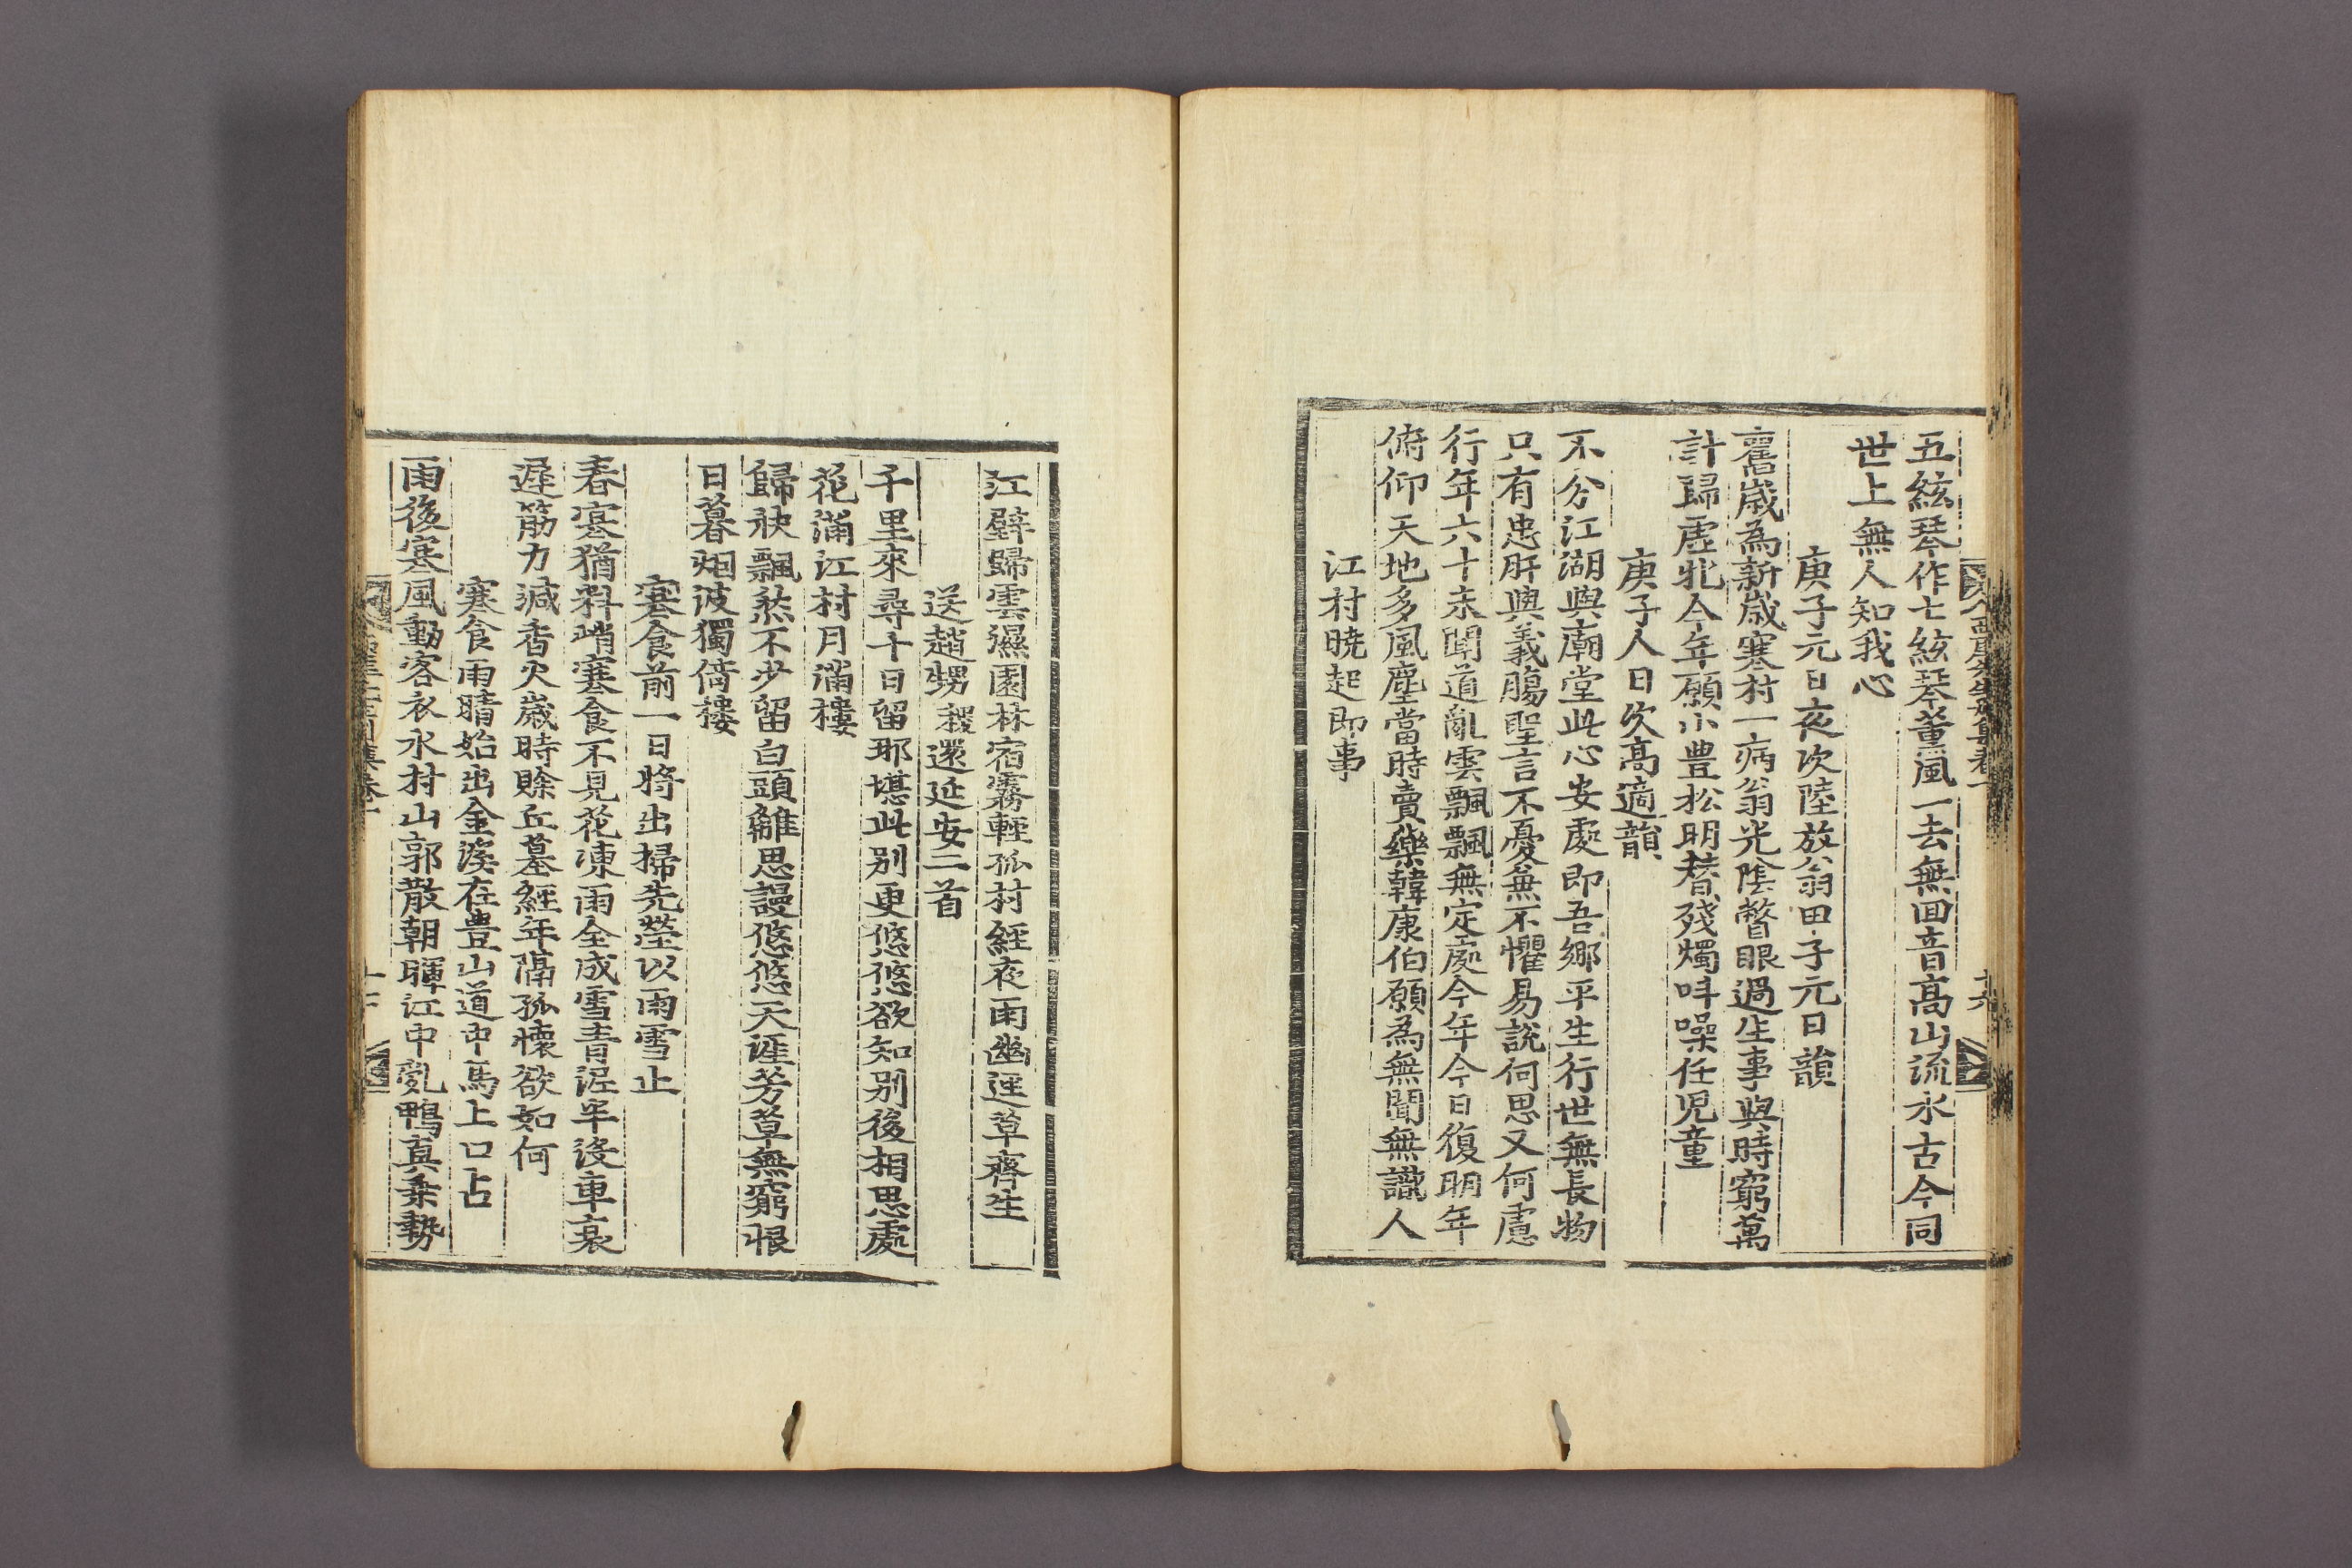 五絃琴作七絃琴薰風一去無回音高山流水古今同
世上無人知我心
庚子元日夜次陸放翁田子元日韻
舊歲為新歲寒村一病翁光陰瞥眼過生事與時窮萬
計歸虛牝今年願小豊松明替殘燭呌噪任児童
庚子人日次高適韻
不分江湖與廟堂此心安處即吾鄉平生行世無長物
只有忠肝與義膓聖言不憂兼不懼易說何思又何慮
行年六十未聞道亂雲飄飄無定處今年今日復明年
俯仰天地多風塵當時賣藥韓康伯願為無聞無識人
江村曉起即事
江壁歸雲濕園林宿霧輕孤村經夜雨幽逕草齊生
送趙甥稷還延安二首
千里來尋十日留那堪此别更悠悠欲知别後相思處
花滿江村月滿樓
歸袂飄然不少留白頭離思謾悠悠天涯芳草無窮恨
日暮烟波獨倚樓
寒食前一日將出掃先塋以雨雪止
春寒猶料峭寒食不見花凍雨全成雪青泥半沒車衰
遲筋力減香火歲時賒丘墓經年隔孤懷欲如何
寒食雨晴始出金溪在豊山道中馬上口占
雨後寒風動客衣水村山郭散朝暉江中亂鴨真乗勢